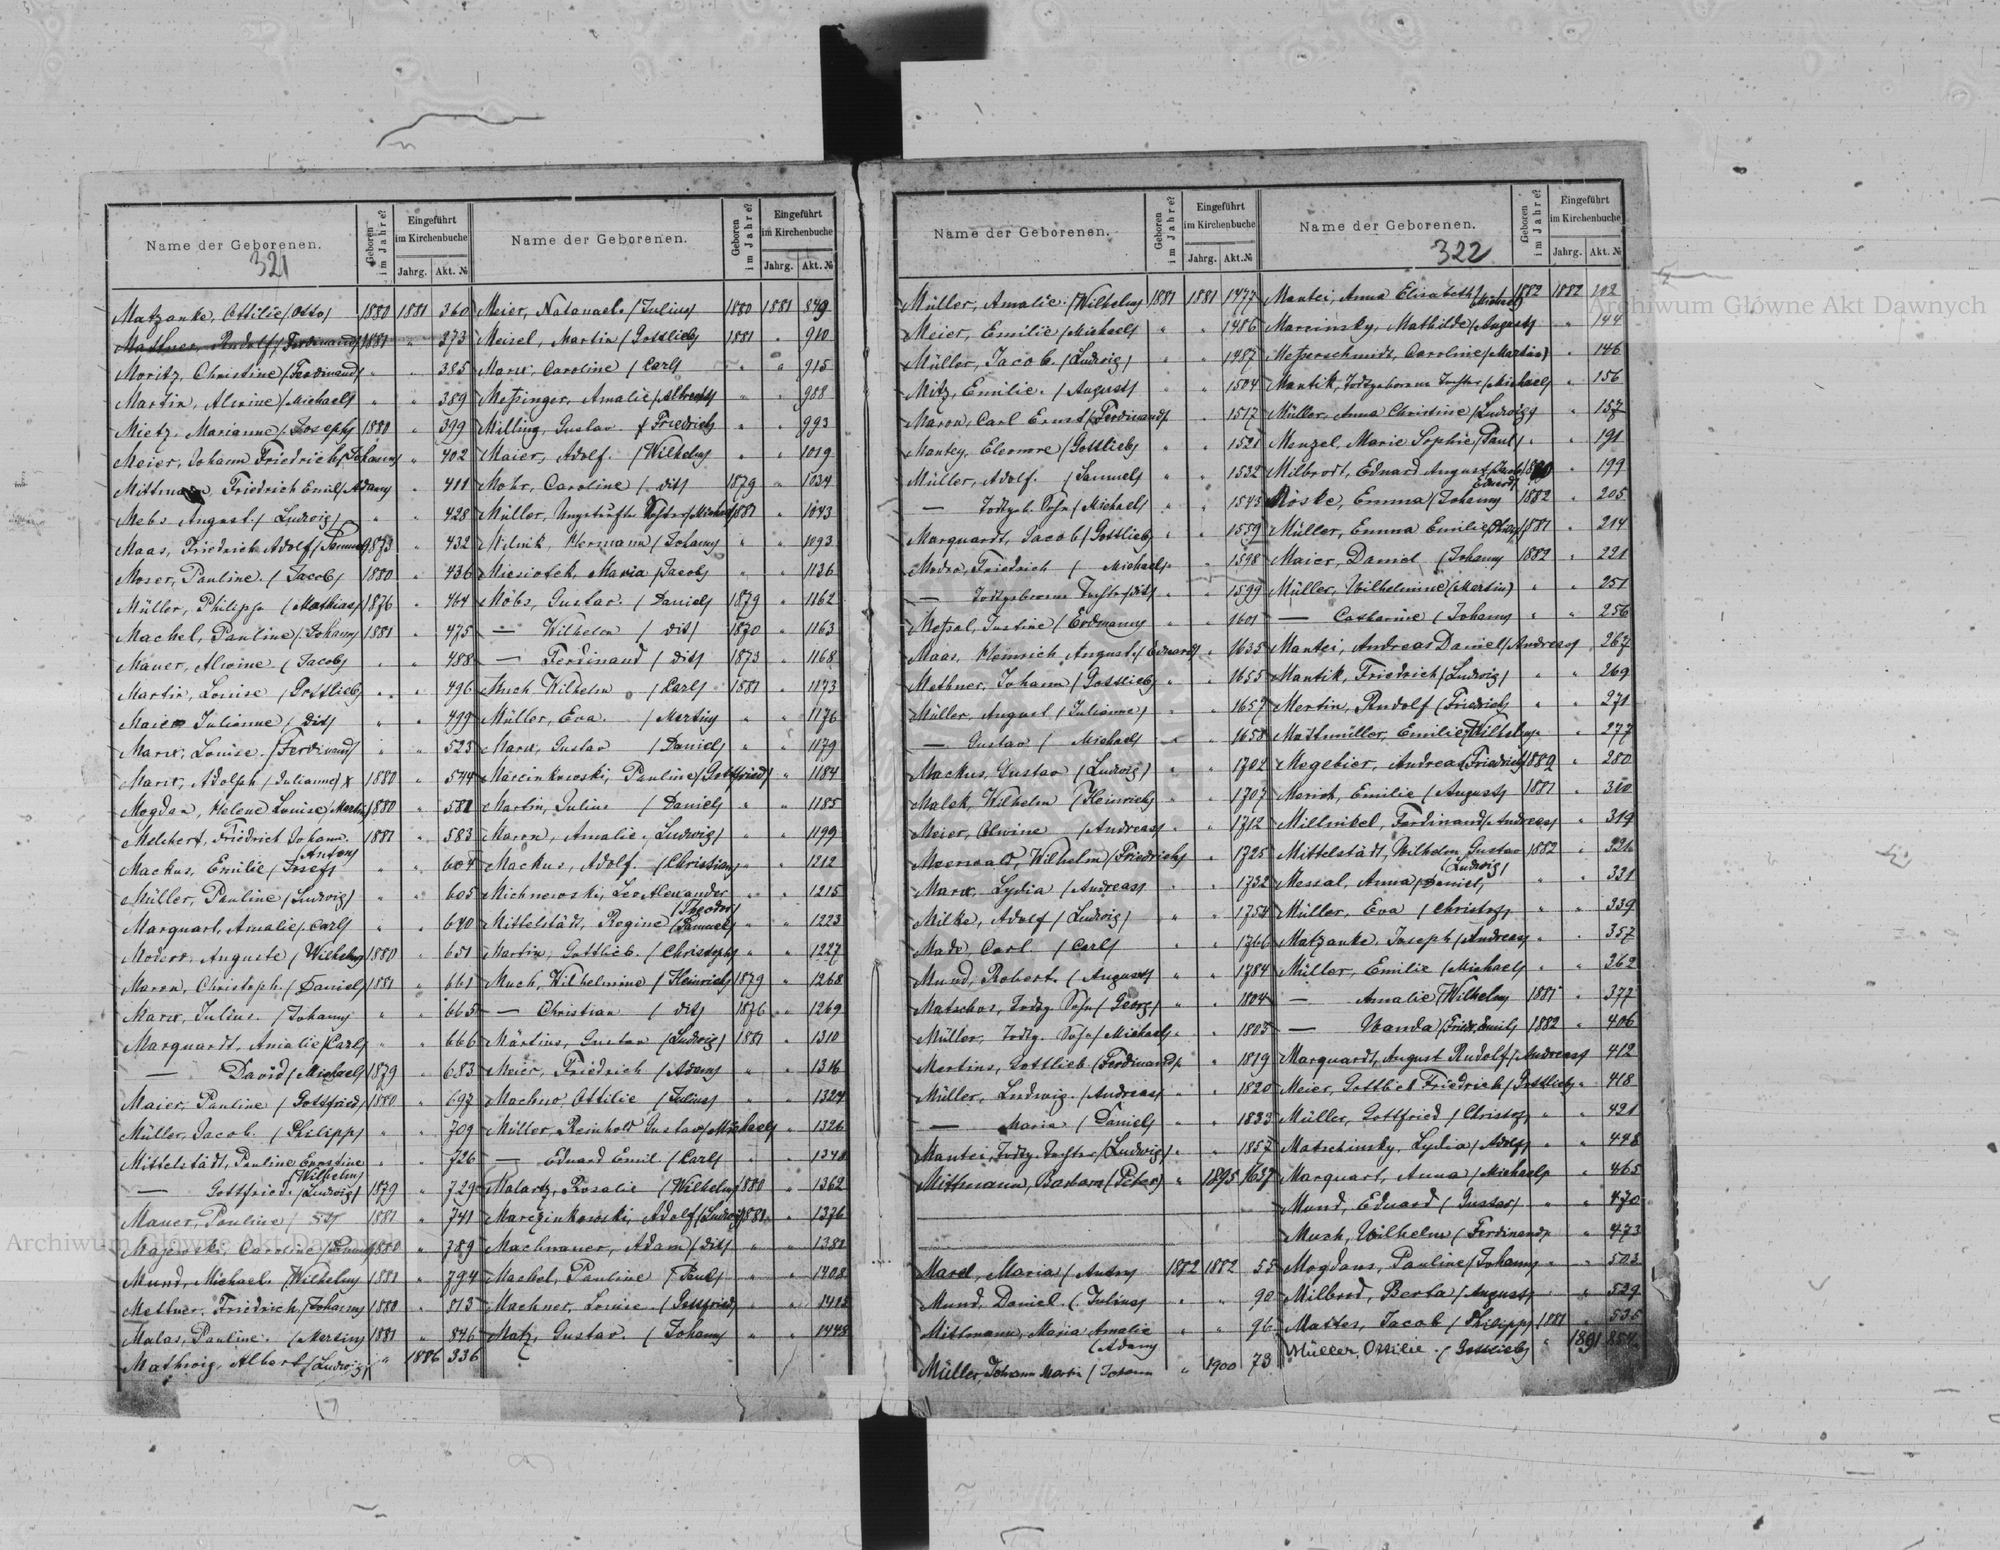 Name der Geborenen.
321
Geboren im Jahre?
Eingeführt im Kirchenbuche
Jahrg. Akt. №
Matzanke, Ottilie (Otto) 1880 1881 360
Mattner, Rudolf (Ferdinand) 1881 " 273
Moritz, Christine (Ferdinand) " " 385
Martin, Alwine (Michael) " " 389
Mietz, Marianne (Joseph) 1880 " 399
Meier, Johann Friedrich (Johann) " 402
Mittmann Friedrich Emil (Adam) " 411
Mebs August (Ludwig) " " 428
Maas, Friedrich Adolf (Samuel) 1873 " 432
Moser, Pauline (Jacob) 1880 " 436
Müller, Philipp (Mathias) 1876 " 464
Machel, Pauline (Johann) 1881 " 475
Mauer, Alwine (Jacob) " " 488
Martin, Louise (Gottlieb) " " 496
Maier Julianne (dito) " " 499
Marx, Louise (Ferdinand) " " 523
Marx, Adolph (Julianne) x 1880 " 544
Mogdan, Helene Louise (Martin) 1880 " 581
Melchert, Friedrich Johann 1881 " 583
(Anton)
Mackus, Emilie (Josef) " " 604
Müller, Pauline (Ludwig) " " 605
Marquart, Amalie (Carl) " " 620
Moderr, Auguste (Wilhelm) 1880 " 651
Maron, Christoph (Daniel) 1881 " 661
Marx, Julius (Johann) " " 665
Marquardt, Amalie (Carl) " " 666
— David (Michael) 1879 " 683
Maier, Pauline (Gottfried) 1880 " 697
Müller, Jacob (Philipp) " " 709
Mittelstädt, Pauline Ernstine " " 726
(Wilhelm)
— Gottfried (Ludwig) 1879 " 729
Mauer, Pauline 1881 " 741
Majewski, Caroline (Johann) 1880 " 789
Mund, Michael (Wilhelm) 1881 " 794
Mettner, Friedrich (Johann) 1880 " 813
Malas, Pauline (Martin) 1881 " 846
Mathwig, Albert (Ludwig) " 1886 336
Name der Geborenen.
Geboren im Jahre?
Eingeführt im Kirchenbuche
Jahrg. Akt. №
Meier, Natanael (Julius) 1880 1881 849
Meisel, Martin (Gottlieb) 1881 " 910
Marx, Caroline (Carl) " " 915
Meßinger, Amalie (Albrecht) " " 988
Milling, Gustav (Friedrich) " " 993
Maier, Adolf (Wilhelm) " " 1019
Mohr, Caroline (dito) 1879 " 1034
Müller, Ungetaufte Tochter (Michael) 1881 " 1043
Wilnik, Hermann (Johann) " " 1093
Miesiotek, Maria (Jacob) " " 1136
Möbs, Gustav (Daniel) 1879 " 1162
— Wilhelm (dito) 1870 " 1163
— Ferdinand (dito) 1873 " 1168
Much Wilhelm (Carl) 1881 " 1173
Müller, Eva (Martin) " " 1176
Marx, Gustav (Daniel) " " 1179
Marcinkowski, Pauline (Gottfried) " 1184
Martin, Julius (Daniel) " " 1185
Maron, Amalie (Ludwig) " " 1199
Mackus, Adolf (Christian) " " 1212
Michnewski, Leo Alexander " " 1215
(Theodor)
Mittelstädt, Regine (Samuel) " " 1223
Martin, Gottlieb (Christoph) " " 1227
Much, Wilhelmine (Heinrich) 1879 " 1268
— Christian (dito) 1876 " 1269
Märtins, Gustav (Ludwig) 1881 " 1310
Meier, Friedrich (Adam) " " 1316
Machno Ottilie (Julius) " " 1324
Müller, Reinhold Gustav (Michael) " 1326
— Eduard Emil (Carl) " " 1348
Malartz, Rosalie (Wilhelm) 1880 " 1362
Marczinkowski, Adolf (Ludwig) 1881 " 1376
Machnauer, Adam (dito) " " 1382
Machel, Pauline (Paul) " " 1408
Machner, Louise (Gottfried) " "
Matz, Gustav (Johann) " " 1445
Name der Geborenen.
Geboren im Jahre?
Eingeführt im Kirchenbuche
Müller, Amalie (Wilhelm) 1881 1881 1477
Meier, Emilie (Michael) " " 1486
Müller, Jacob (Ludwig) " " 1487
Mitz, Emilie (August) " " 1504
Maron, Carl Ernst (Ferdinand) " 1517
Mantey, Eleonore (Gottlieb) " " 1521
Müller, Adolf (Samuel) " " 1532
— Todtgeb. Sohn (Michael) " " 1545
Marquardt, Jacob (Gottlieb) " " 1559
Modro, Friedrich (Michael) " " 1598
— Todtgeborene Tochter (dito) " 1599
Meßal, Justine (Erdmann) " " 1601
Maas, Heinrich August (Eduard) " 1635
Methner, Johann (Gottlieb) " " 1655
Müller, August (Julianne) " " 1657
— Gustav (Michael) " " 1658
Mackus, Gustav (Ludwig) " " 1702
Malek, Wilhelm (Heinrich) " " 1707
Meier, Alwine (Andreas) " " 1712
Meerwald, Wilhelm (Friedrich) " 1725
Marx, Lydia (Andreas) " " 1732
Milke, Adolf (Ludwig) " " 1754
Made, Carl (Carl) " " 1766
Mund, Robert (August) " " 1784
Matschos, Todtg. Sohn (Georg) " " 1804
Müller, Todtg. Sohn (Michael) " " 1805
Mertins, Gottlieb (Ferdinand) " 1819
Müller, Ludwig (Andreas) " " 1820
— Maria (Daniel) " " 1833
Mantei, Todtg. Tochter (Ludwig) " " 1857
Mittmann, Barbara (Peter) " 1895 1637
Marel, Maria (Andrej) 1882 1882 55
Mund, Daniel (Julius) " " 90
Mittmann, Maria Amalie " " 96
(Adam)
Müller, Johann Martin (Johann " 1900 73
Name der Geborenen.
322
Geboren im Jahre?
Eingeführt im Kirchenbuche
Jahrg. Akt. №
Mantei, Anna Elisabeth 1882 1882 102
(Michael)
Marcinsky, Mathilde (August) " 144
Meßerschmidt, Caroline (Martin) " 146
Mantik, Todtgeborene Tochter (Michael) " 156
Müller, Anna Christine (Ludwig) " 157
Menzel, Marie Sophie (Paul) " " 191
Milbrodt, Eduard August (Jacob " 199
Eduard)
Röske, Emma (Johann) 1882 " 205
Müller, Emma Emilie 1881 " 214
Maier, Daniel (Johann) 1882 " 221
Müller, Wilhelmine (Martin) " " 251
— Catharine (Johann) " " 256
Mantei, Andreas Daniel (Andreas) " 267
Mantik, Friedrich (Ludwig) " " 269
Mertin, Rudolf (Friedrich) " " 271
Mathmüller, Emilie (Wilhelm) " 277
Megebier, Andreas (Friedrich) 1882 " 280
Merish, Emilie (August) 1881 " 310
Millnikel, Ferdinand (Andreas) " 319
Mittelstädt, Wilhelm Gustav 1882 "
(Ludwig)
Messal, Anna (Daniel) " " 331
Müller, Eva (Christof) " " 339
Matzanke, Joseph (Andreas) " " 357
Müller, Emilie (Michael) " " 362
— Amalie (Wilhelm) 1881 " 377
— Wanda (Friedr. Emil) 1882 " 406
Marquardt, August Rudolf (Andreas) 412
Meier, Gottlieb Friedrich (Gottlieb) " 418
Müller, Gottfried (Christof) " " 421
Matschinsky, Lydia (Adolf) " " 448
Marquart, Anna (Michael) " " 465
Mund, Eduard (Gustav) " " 470
Much, Wilhelm (Ferdinand) " 473
Mogdans, Pauline (Johann) " " 503
Milbrod, Berta (August) " " 529
Mattes, Jacob (Philipp) 1881 " 535
Müller, Ottilie (Gottlieb) " 1891 854
Archiwum Główne Akt Dawnych
Archiwum Główne Akt Dawnych